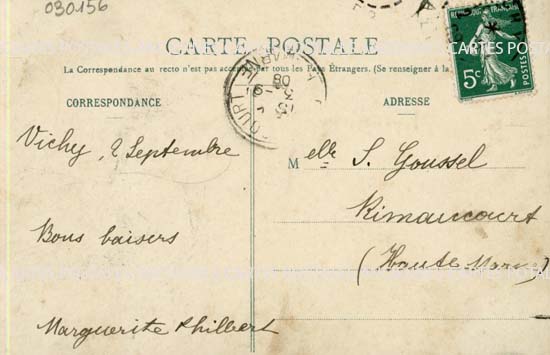 030156
CARTE POSTALE
La Correspondance au recto n'est pas acceptée par tous les Pays Étrangers. (Se renseigner à la
CORRESPONDANCE
ADRESSE
5c
POSTES
Vichy, 2 Septembre
Bons baisers
Marguerite Philbert
Melle S. Goussel
Rimaucourt
(Haute Marne)